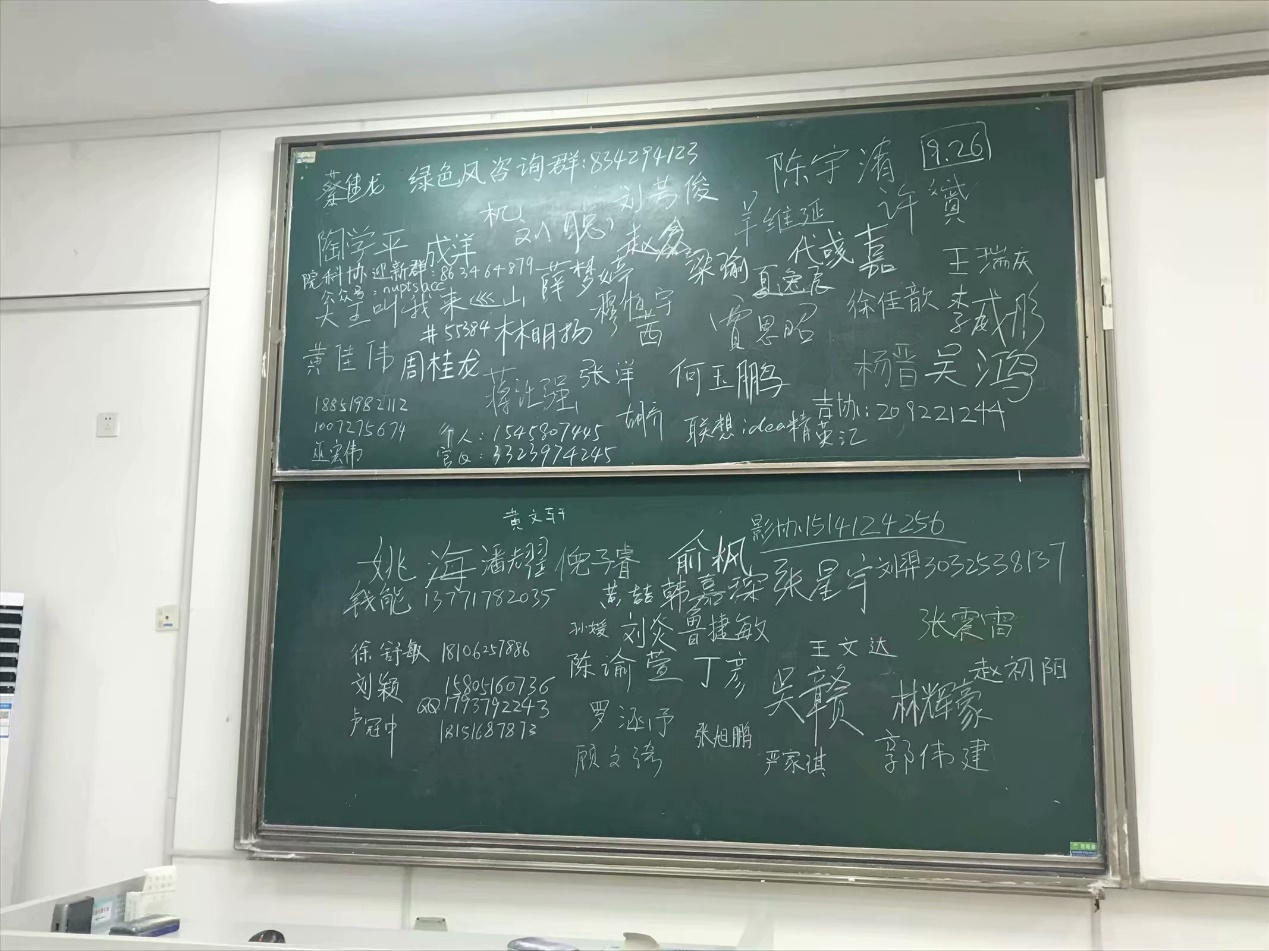 蔡佳龙 绿色风咨询群:834294123 陈宇清 9.26
机 刘芳俊 羊维延 许赟
陶学平 成洋 刘聪 赵鑫 梁瑜 代彧嘉 王瑞庆
院科协迎新群:863464879 薛梦婷 夏逸辰
公众号:nuptsacc
大王叫我来巡山 穆恒宇 徐佳歆 李彧彤
#55384 林明扬 茜 贾恩昭
黄佳伟 周桂龙 张洋 何玉鹏 杨晋 吴鸿
18851982112 蒋 强
1007275674 个人:1545807445 胡齐 联想idea精英汇 吉协:209221244
巫宏伟 官Q:3323974245
黄文轩 影协:1514124256
姚海 潘 翟 倪子睿 俞枫
钱能 13771782035 黄喆 韩嘉琛 张星宇 刘羿3032538137
孙媛 刘炎 鲁捷敏 张震雷
徐舒敏 18106257886 陈谕萱 丁彦 王文达 赵初阳
刘颖 15805160736 吴赣 林辉豪
QQ1793792243
卢冠中 18151687873 罗涵伃 张旭鹏
顾文涛 严家琪 郭伟建